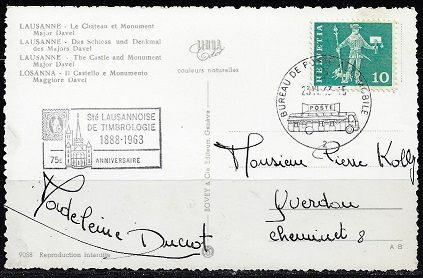 LAUSANNE - Le Château et Monument
Major Davel
LAUSANNE - Das Schloss und Denkmal
des Majors Davel
LAUSANNE - The Castle and Monument
Major Davel
LOSANNA - Il Castello e Monumento
Maggiore Davel
couleurs naturelles
HELVETIA
10
BUREAU DE
MOBILE
POSTE
2
Sté LAUSANNOISE
DE TIMBROLOGIE
1888-1963
75e ANNIVERSAIRE
BOVEY & Cie Editeurs, Genève
Monsieur Pierre Kolly
Yverdon
Cheminet 8
Madeleine Ducrot
9058 Reproduction interdite
A B